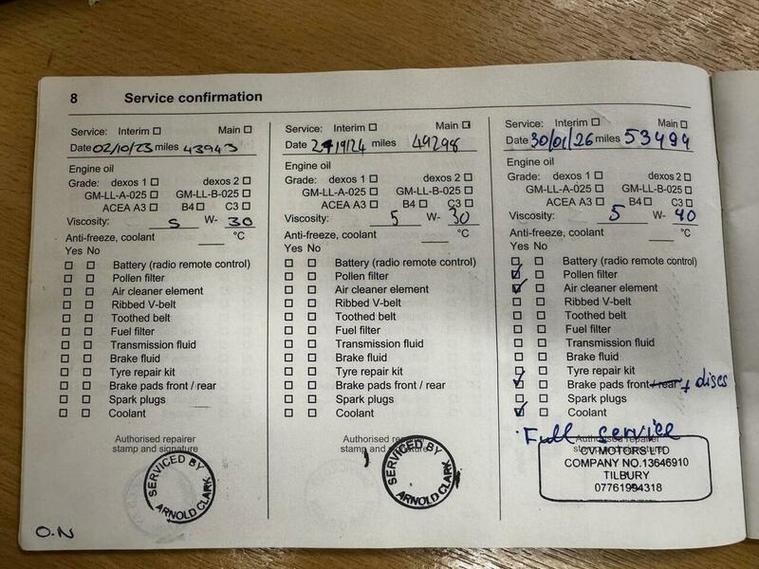 8 Service confirmation
Service: Interim Main
Date 02/10/23 miles 43943
Engine oil
Grade: dexos 1 dexos 2
GM-LL-A-025 GM-LL-B-025
ACEA A3 B4 C3
Viscosity: 5 W- 30
Anti-freeze, coolant °C
Yes No
Battery (radio remote control)
Pollen filter
Air cleaner element
Ribbed V-belt
Toothed belt
Fuel filter
Transmission fluid
Brake fluid
Tyre repair kit
Brake pads front / rear
Spark plugs
Coolant
Authorised repairer
stamp and signature
SERVICED BY
ARNOLD CLARK
O.N
Service: Interim Main
Date miles 49298
Engine oil
Grade: dexos 1 dexos 2
GM-LL-A-025 GM-LL-B-025
ACEA A3 B4 C3
Viscosity: 5 W- 30
Anti-freeze, coolant °C
Yes No
Battery (radio remote control)
Pollen filter
Air cleaner element
Ribbed V-belt
Toothed belt
Fuel filter
Transmission fluid
Brake fluid
Tyre repair kit
Brake pads front / rear
Spark plugs
Coolant
Authorised repairer
stamp and signature
SERVICED BY
ARNOLD CLARK
Service: Interim Main
Date 30/01/26 miles 53494
Engine oil
Grade: dexos 1 dexos 2
GM-LL-A-025 GM-LL-B-025
ACEA A3 B4 C3
Viscosity: 5 W- 40
Anti-freeze, coolant °C
Yes No
Battery (radio remote control)
Pollen filter
Air cleaner element
Ribbed V-belt
Toothed belt
Fuel filter
Transmission fluid
Brake fluid
Tyre repair kit
Brake pads front / rear + discs
Spark plugs
Coolant
Full service
Authorised repairer
stamp and signature
CV MOTORS LTD
COMPANY NO.13646910
TILBURY
07761994318